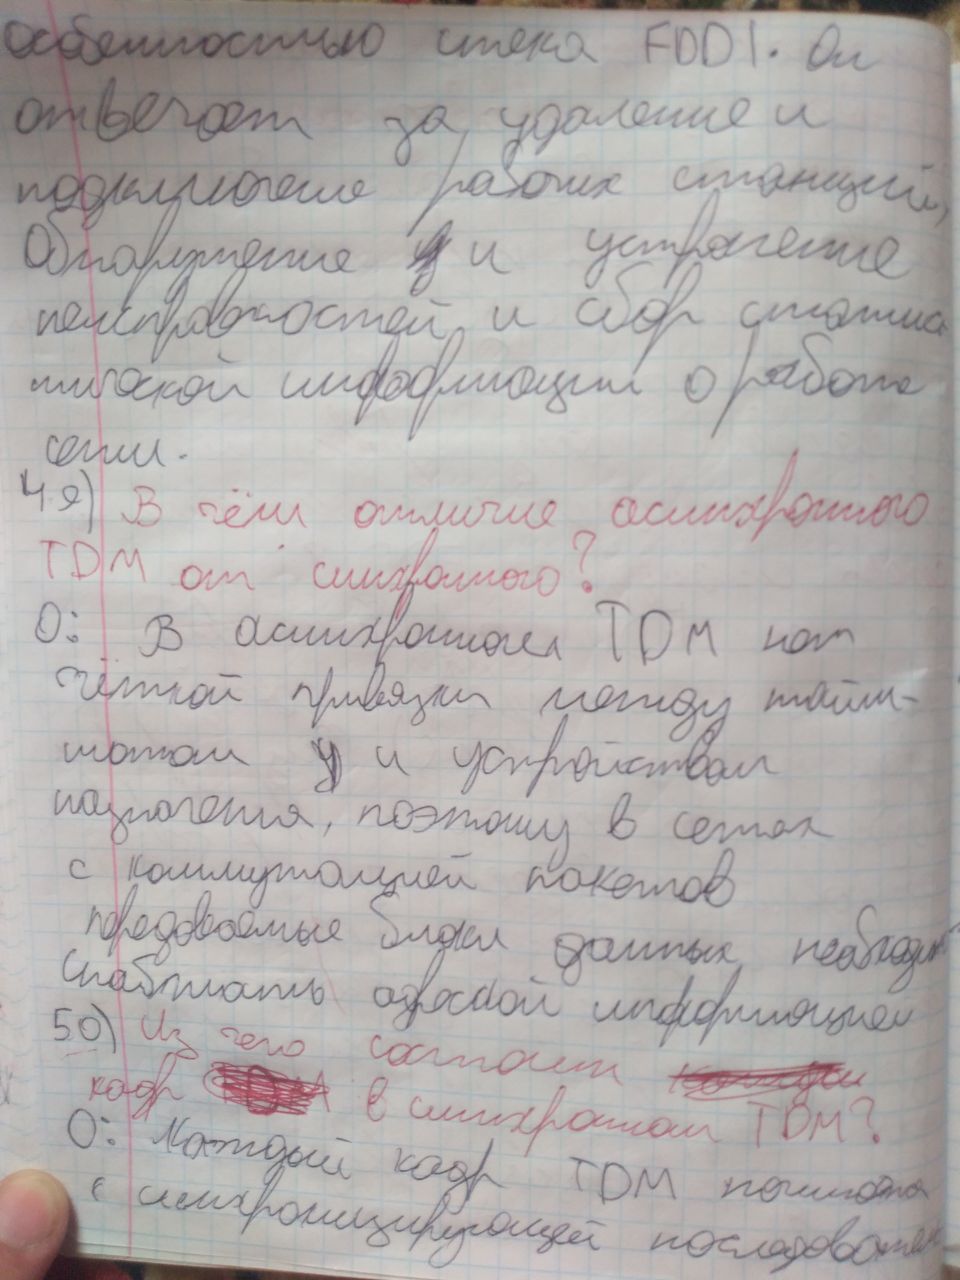 особенностью стека FDDI. Он
отвечает за удаление и
подключение рабочих станций,
Обнаружение и устранение
неисправностей и сбор статис
тической информации о работе
сети.
49) В чём отличие асинхронного
TDM от синхронного?
О: В асинхронном TDM нет
чёткой привязки между тайм-
слотом и устройством
назначения, поэтому в сетях
с коммутацией пакетов
передаваемые блоки данных необходим
снабжать адресной информацией
50) Из чего состоит
кадр в синхронном TDM?
О: Каждый кадр TDM начинается
с синхронизирующей последовател